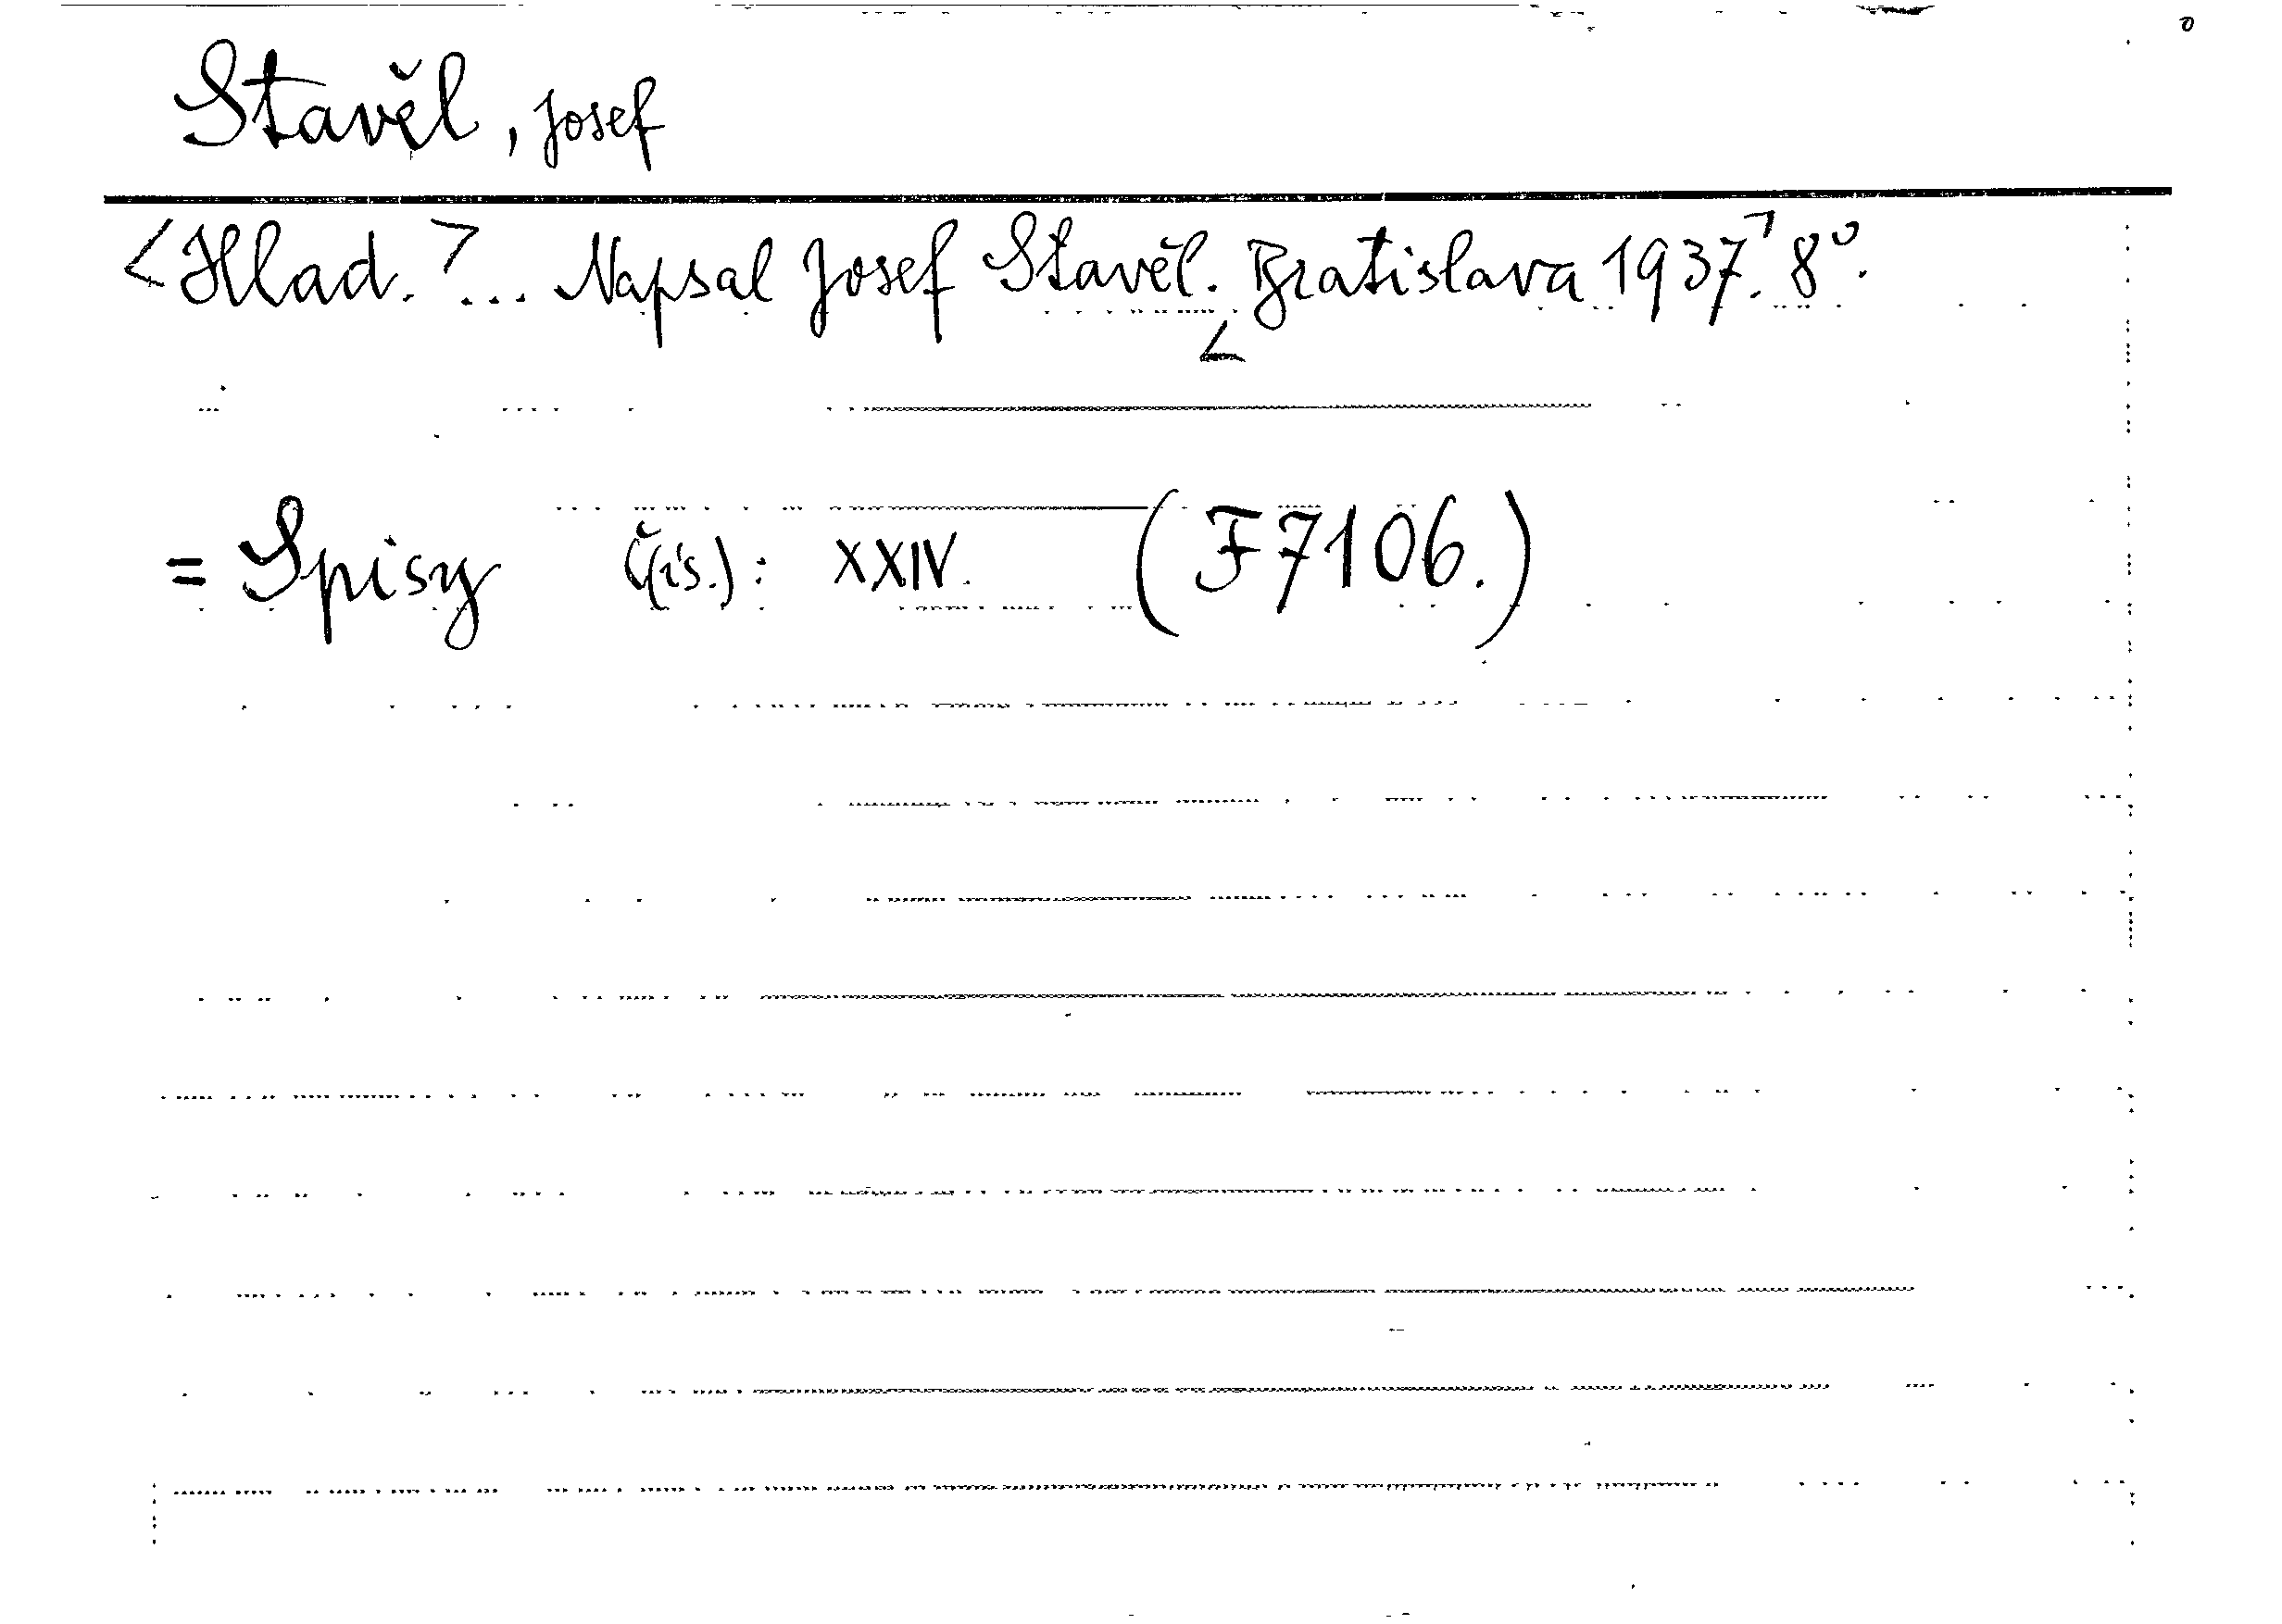 Stavěl, Josef
<Hlad.> ... Napsal Josef Stavěl. <Bratislava 1937.> 8°.
= Spisy Č(ís.): XXIV. (F7106.)